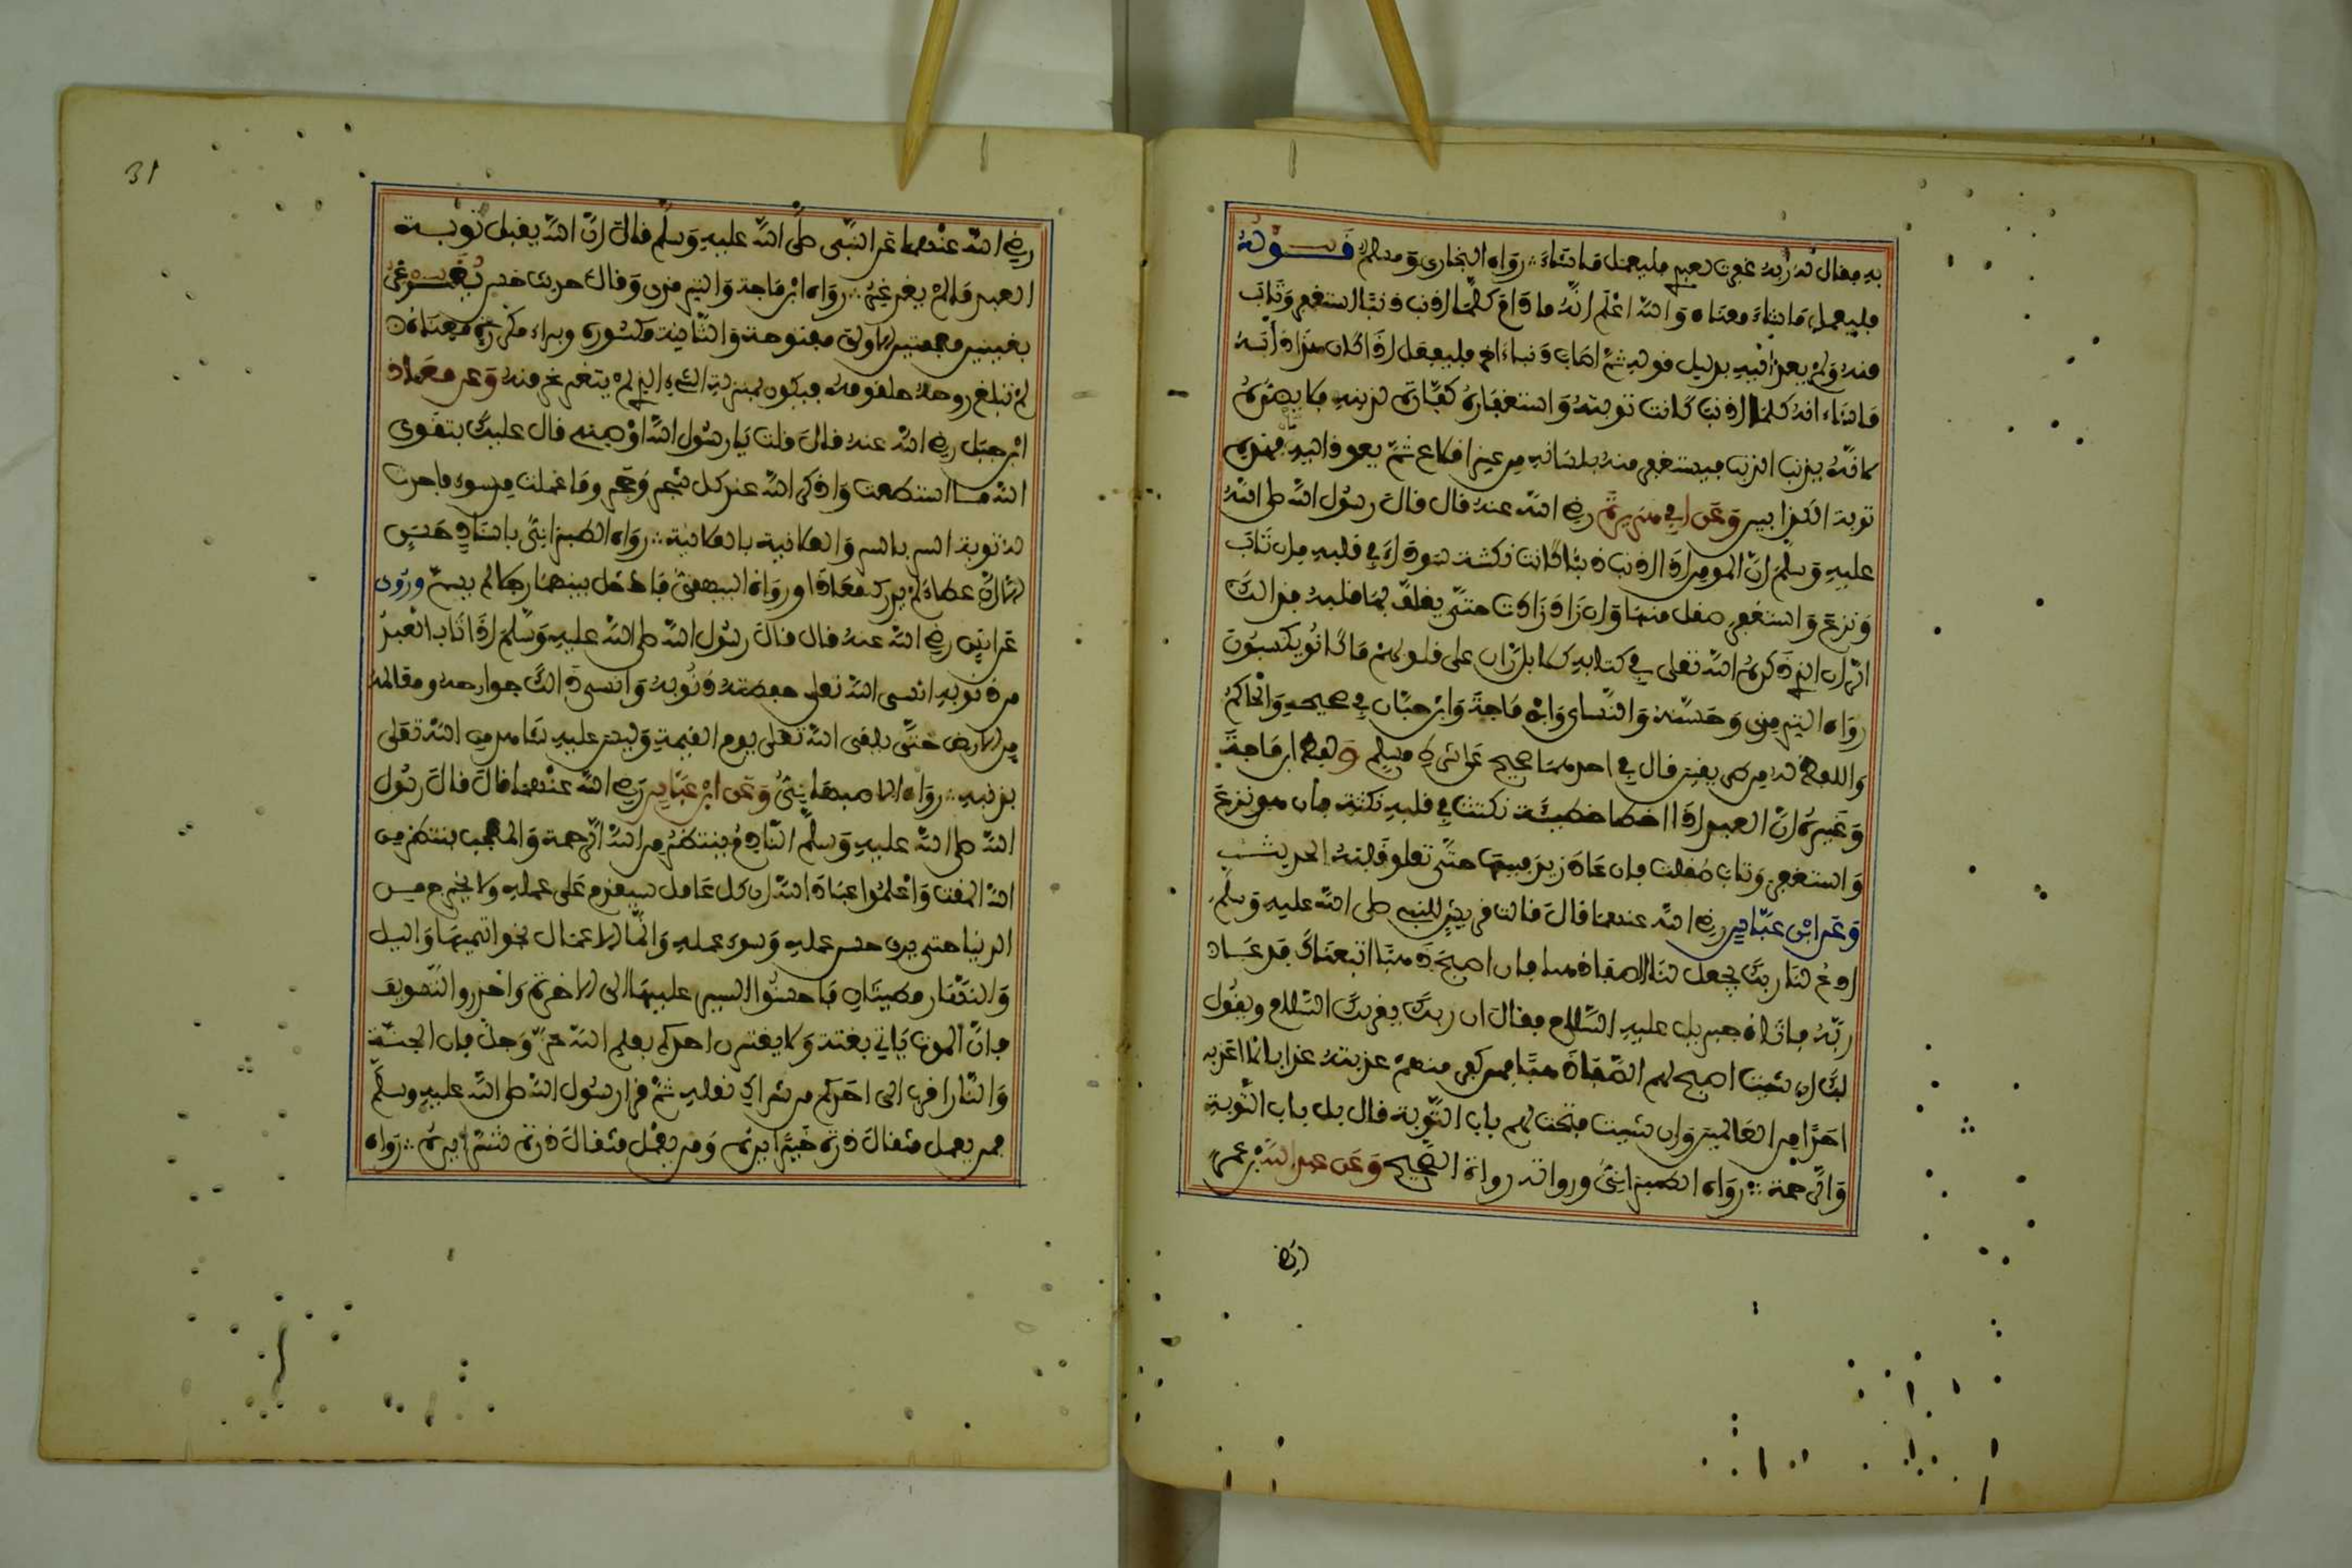 به فقال له ربه غفرت لعبدي فليعمل ما شاء رواه البخاري ومسلم قوله
فليعمل ما شاء معناه والله اعلم انه ما دام كلما اذنب ذنبا استغفر وتاب
منه ولم يعد اليه بدليل قوله ثم اصاب ذنبا ءاخر فليفعل اذا كان هذا دابه
ما شاء لانه كلما اذنب كانت توبته واستغفاره كفارة لذنبه فلا يضره
لا انه يذنب الذنب فيستغفر منه بلسانه من غير اقلاع ثم يعود اليه فهذه
توبة الكذابين وعن ابي هريرة رضي الله عنه قال قال رسول الله صلى الله
عليه وسلم ان المومن اذا اذنب ذنبا كانت نكتة سوداء في قلبه فان تاب
ونزع واستغفر صقل منها وان زاد زادت حتى يغلف بها قلبه فذالك
الران الذي ذكره الله تعلى في كتابه كلا بل ران على قلوبهم ما كانوا يكسبون
رواه الترمذي وحسنه والنساي وابن ماجة وابن حبان في صحيحه والحاكم
واللفظ له من طريقين قال في احدهما صحيح على شرط مسلم ولفظ ابن ماجة
وغيره ان العبد اذا اخطا خطيئة نكتت في قلبه نكتة فان هو نزع
واستغفر وتاب صقلت فان عاد زيد فيها حتى تعلو قلبه الحديث
وعن ابن عباس رضي الله عنهما قال قالت قريش للنبي صلى الله عليه وسلم
ادع لنا ربك يجعل لنا الصفا ذهبا فان اصبح ذهبا اتبعناك فدعا
ربه فاتاه جبريل عليه السلام فقال ان ربك يقريك السلام ويقول
لك ان شئت اصبح لهم الصفا ذهبا فمن كفر منهم عذبته عذابا لا اعذبه
احدا من العالمين وان شئت فتحت لهم باب التوبة قال بل باب التوبة
والرحمة رواه الطبراني ورواته رواة الصحيح وعن عبد الله بن عمر
رضي
31
رضي الله عنهما عن النبي صلى الله عليه وسلم قال ان الله يقبل توبة
العبد ما لم يغرغر رواه ابن ماجة والترمذي وقال حديث حسن يغرغر
بغينين معجمتين الاولى مفتوحة والثانية مكسورة وبراء مكررة معناه
لم تبلغ روحه حلقومه فيكون بمنزلة الشيء الذي يتغرغر منه وعن معاذ
ابن جبل رضي الله عنه قال قلت يا رسول الله اوصني قال عليك بتقوى
الله ما استطعت واذكر الله عند كل شجر وحجر وما عملت من سوء فاحدث
له توبة السر بالسر والعلانية بالعلانية رواه الطبراني باسناد حسن
الا ان عطاء لم يدرك معاذا ورواه البيهقي فادخل بينهما رجلا لم يسم وروي
عن انس رضي الله عنه قال قال رسول الله صلى الله عليه وسلم اذا تاب العبد
من ذنوبه انسى الله تعلى حفظته ذنوبه وانسى ذالك جوارحه ومعالمه
من الارض حتى يلقى الله تعلى يوم القيمة وليس عليه شاهد من الله تعلى
بذنبه رواه الاصبهاني وعن ابن عباس رضي الله عنهما قال قال رسول
الله صلى الله عليه وسلم النادم ينتظر من الله الرحمة والمعجب ينتظر من
الله المقت واعلموا عباد الله ان كل عامل سيقدم على عمله ولا يخرج من
الدنيا حتى يرى حسن عمله وسوء عمله وانما الاعمال بخواتيمها واليل
والنهار مطيتان فاحسنوا السير عليهما الى الاخرة واحذروا التسويف
فان الموت ياتي بغتة ولا يغترن احدكم بحلم الله عز وجل فان الجنة
والنار اقرب الى احدكم من شراك نعله ثم قرا رسول الله صلى الله عليه وسلم
فمن يعمل مثقال ذرة خيرا يره ومن يعمل مثقال ذرة شرا يره رواه